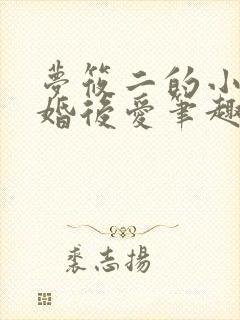 夢筱二的小
婚後愛筆趣
裘志揚